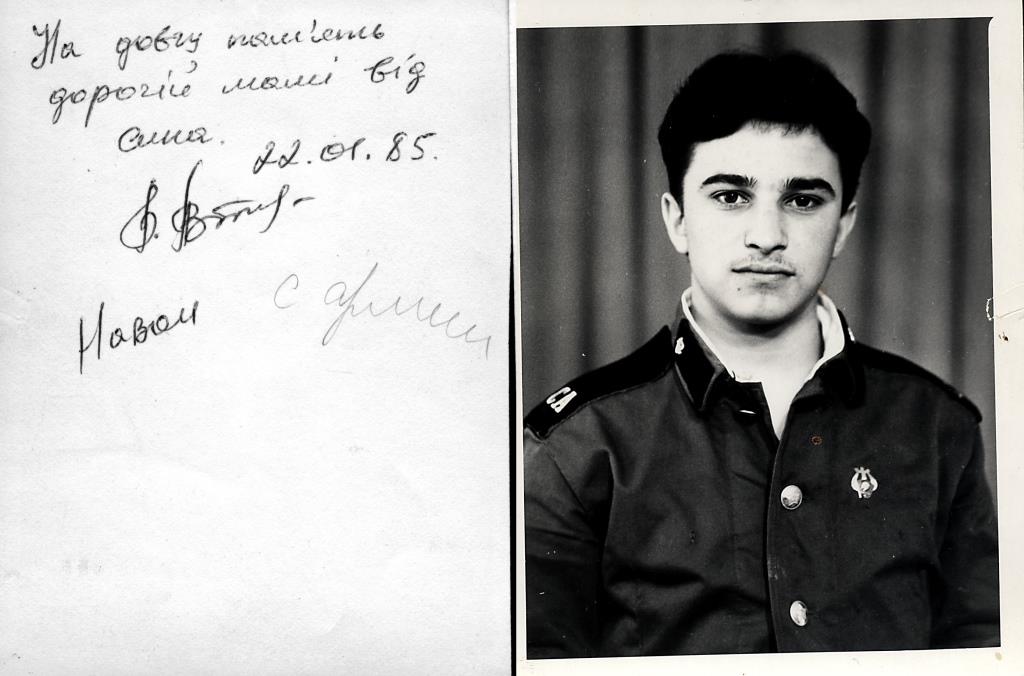 На довгу пам'ять
дорогій мамі від
сина.
22.01.85.
с армии
СА